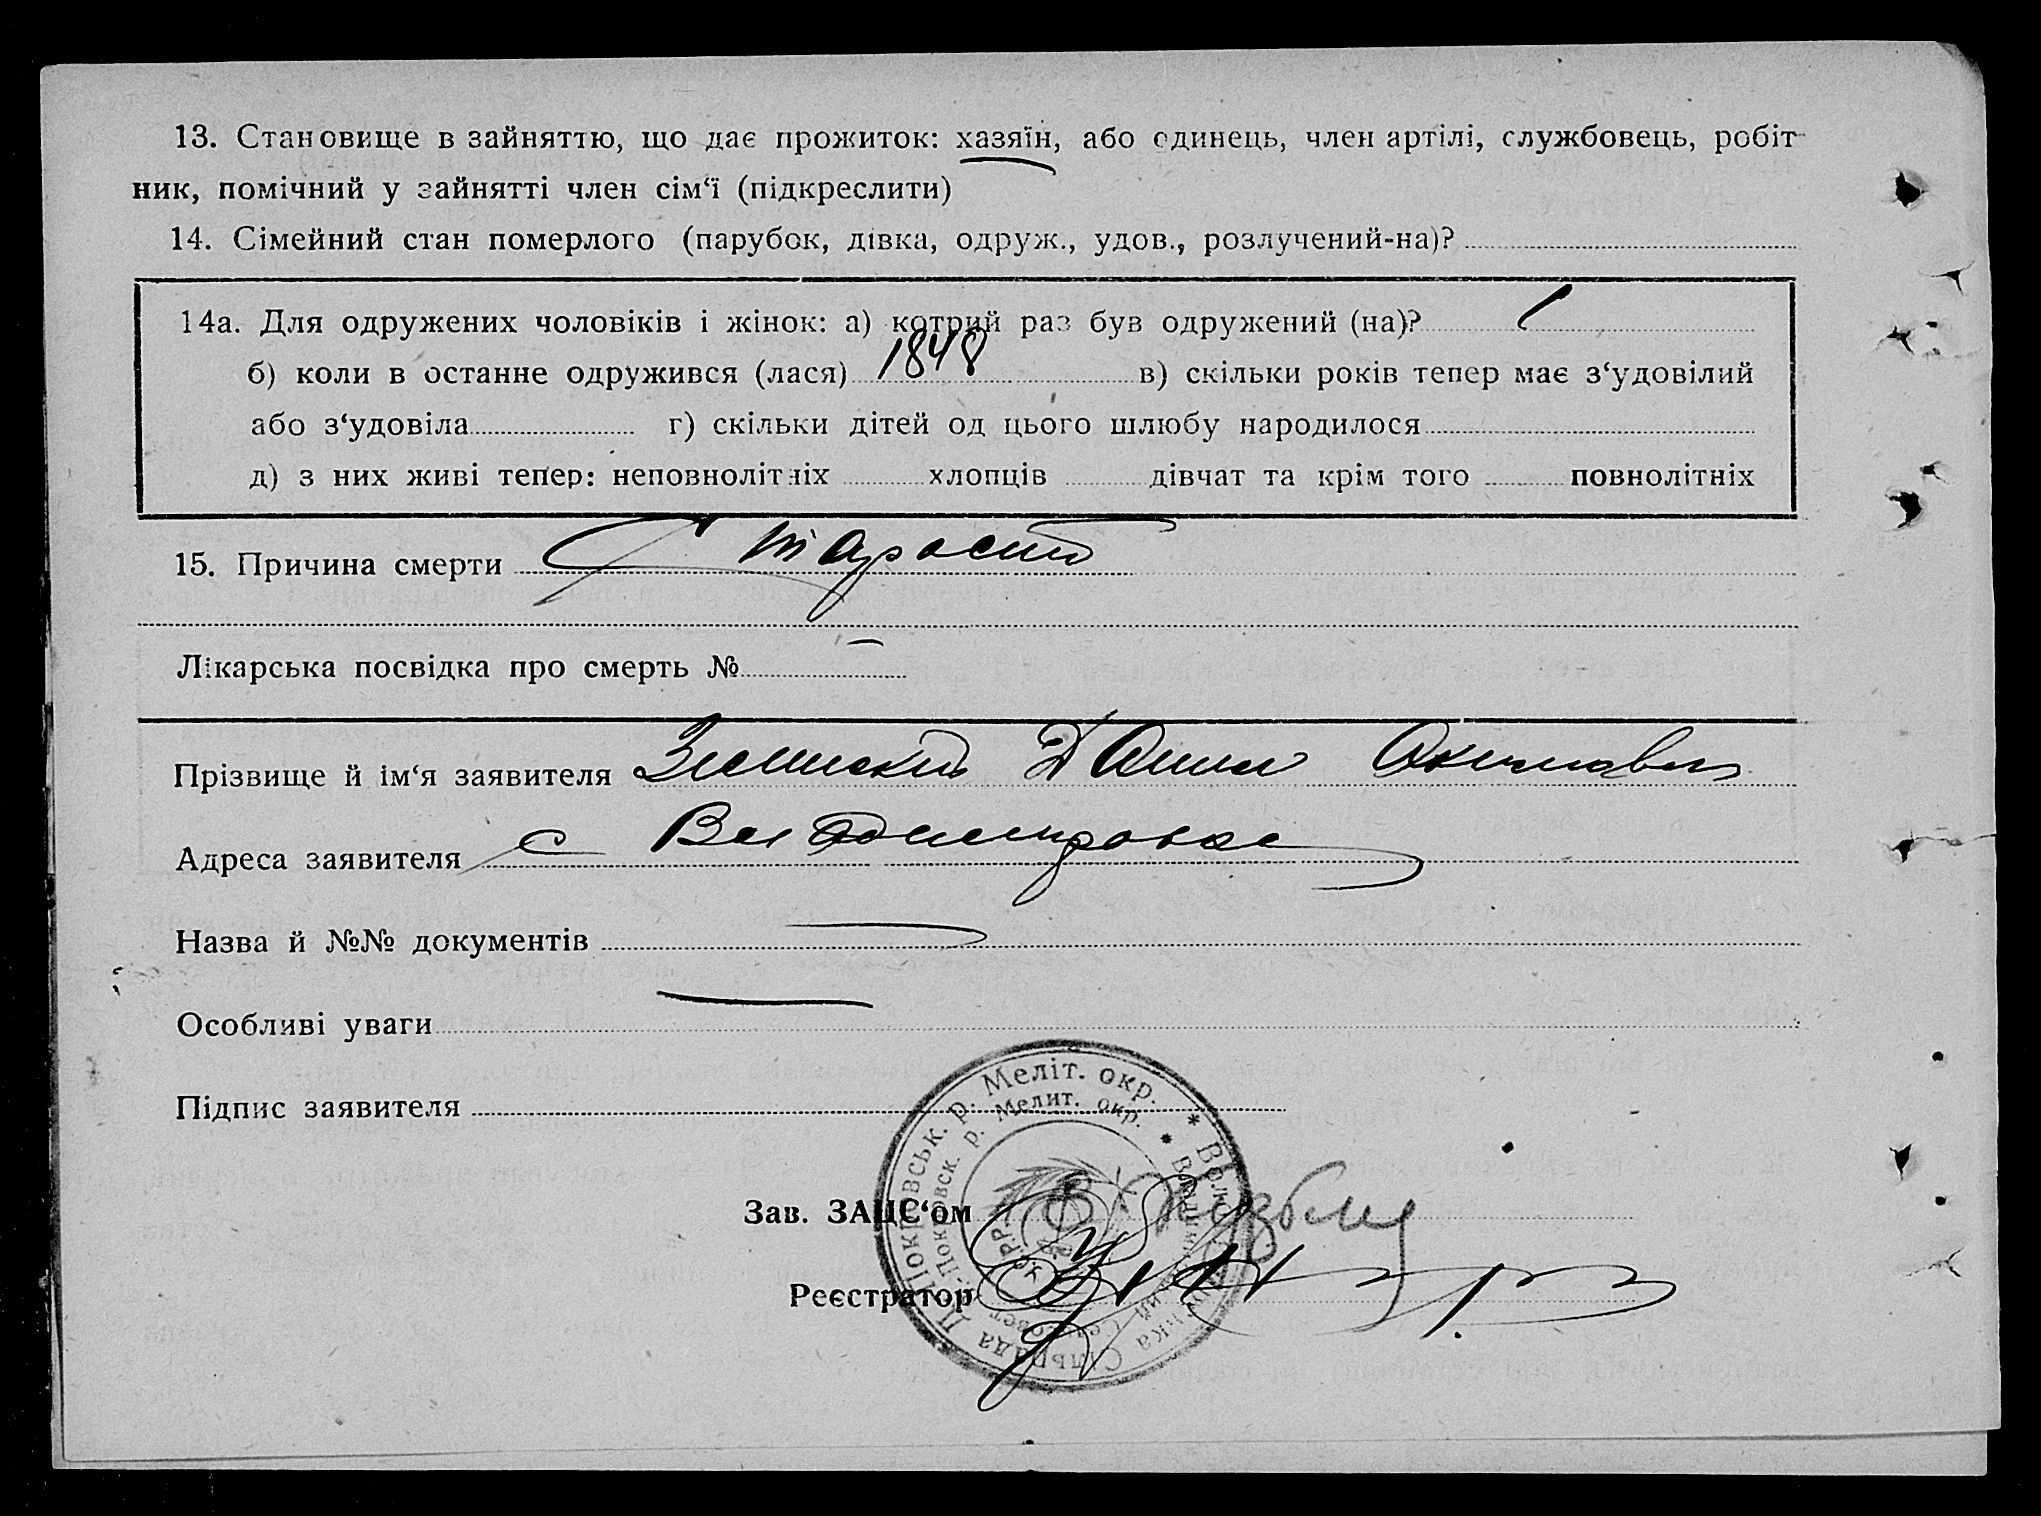 13. Становище в зайняттю, що дає прожиток: хазяїн, або одинець, член артілі, службовець, робіт-
ник, помічний у зайнятті член сім‘ї (підкреслити)
14. Сімейний стан померлого (парубок, дівка, одруж., удов., розлучений-на)?
14а. Для одружених чоловіків і жінок: а) котрий раз був одружений (на)? 1
б) коли в останне одружився (лася) 1848 в) скільки років тепер має з‘удовілий
або з‘удовіла г) скільки дітей од цього шлюбу народилося
д) з них живі тепер: неповнолітніх хлопців дівчат та крім того повнолітніх
15. Причина смерти Старость
Лікарська посвідка про смерть № —
Прізвище й ім‘я заявителя Данил
Адреса заявителя с
Назва й №№ документів —
Особливі уваги —
Підпис заявителя
Покровськ. р. Меліт. окр.
Покровск. р. Мелит. окр.
Зав. ЗАЦС‘ом
Реєстратор
Сільрада